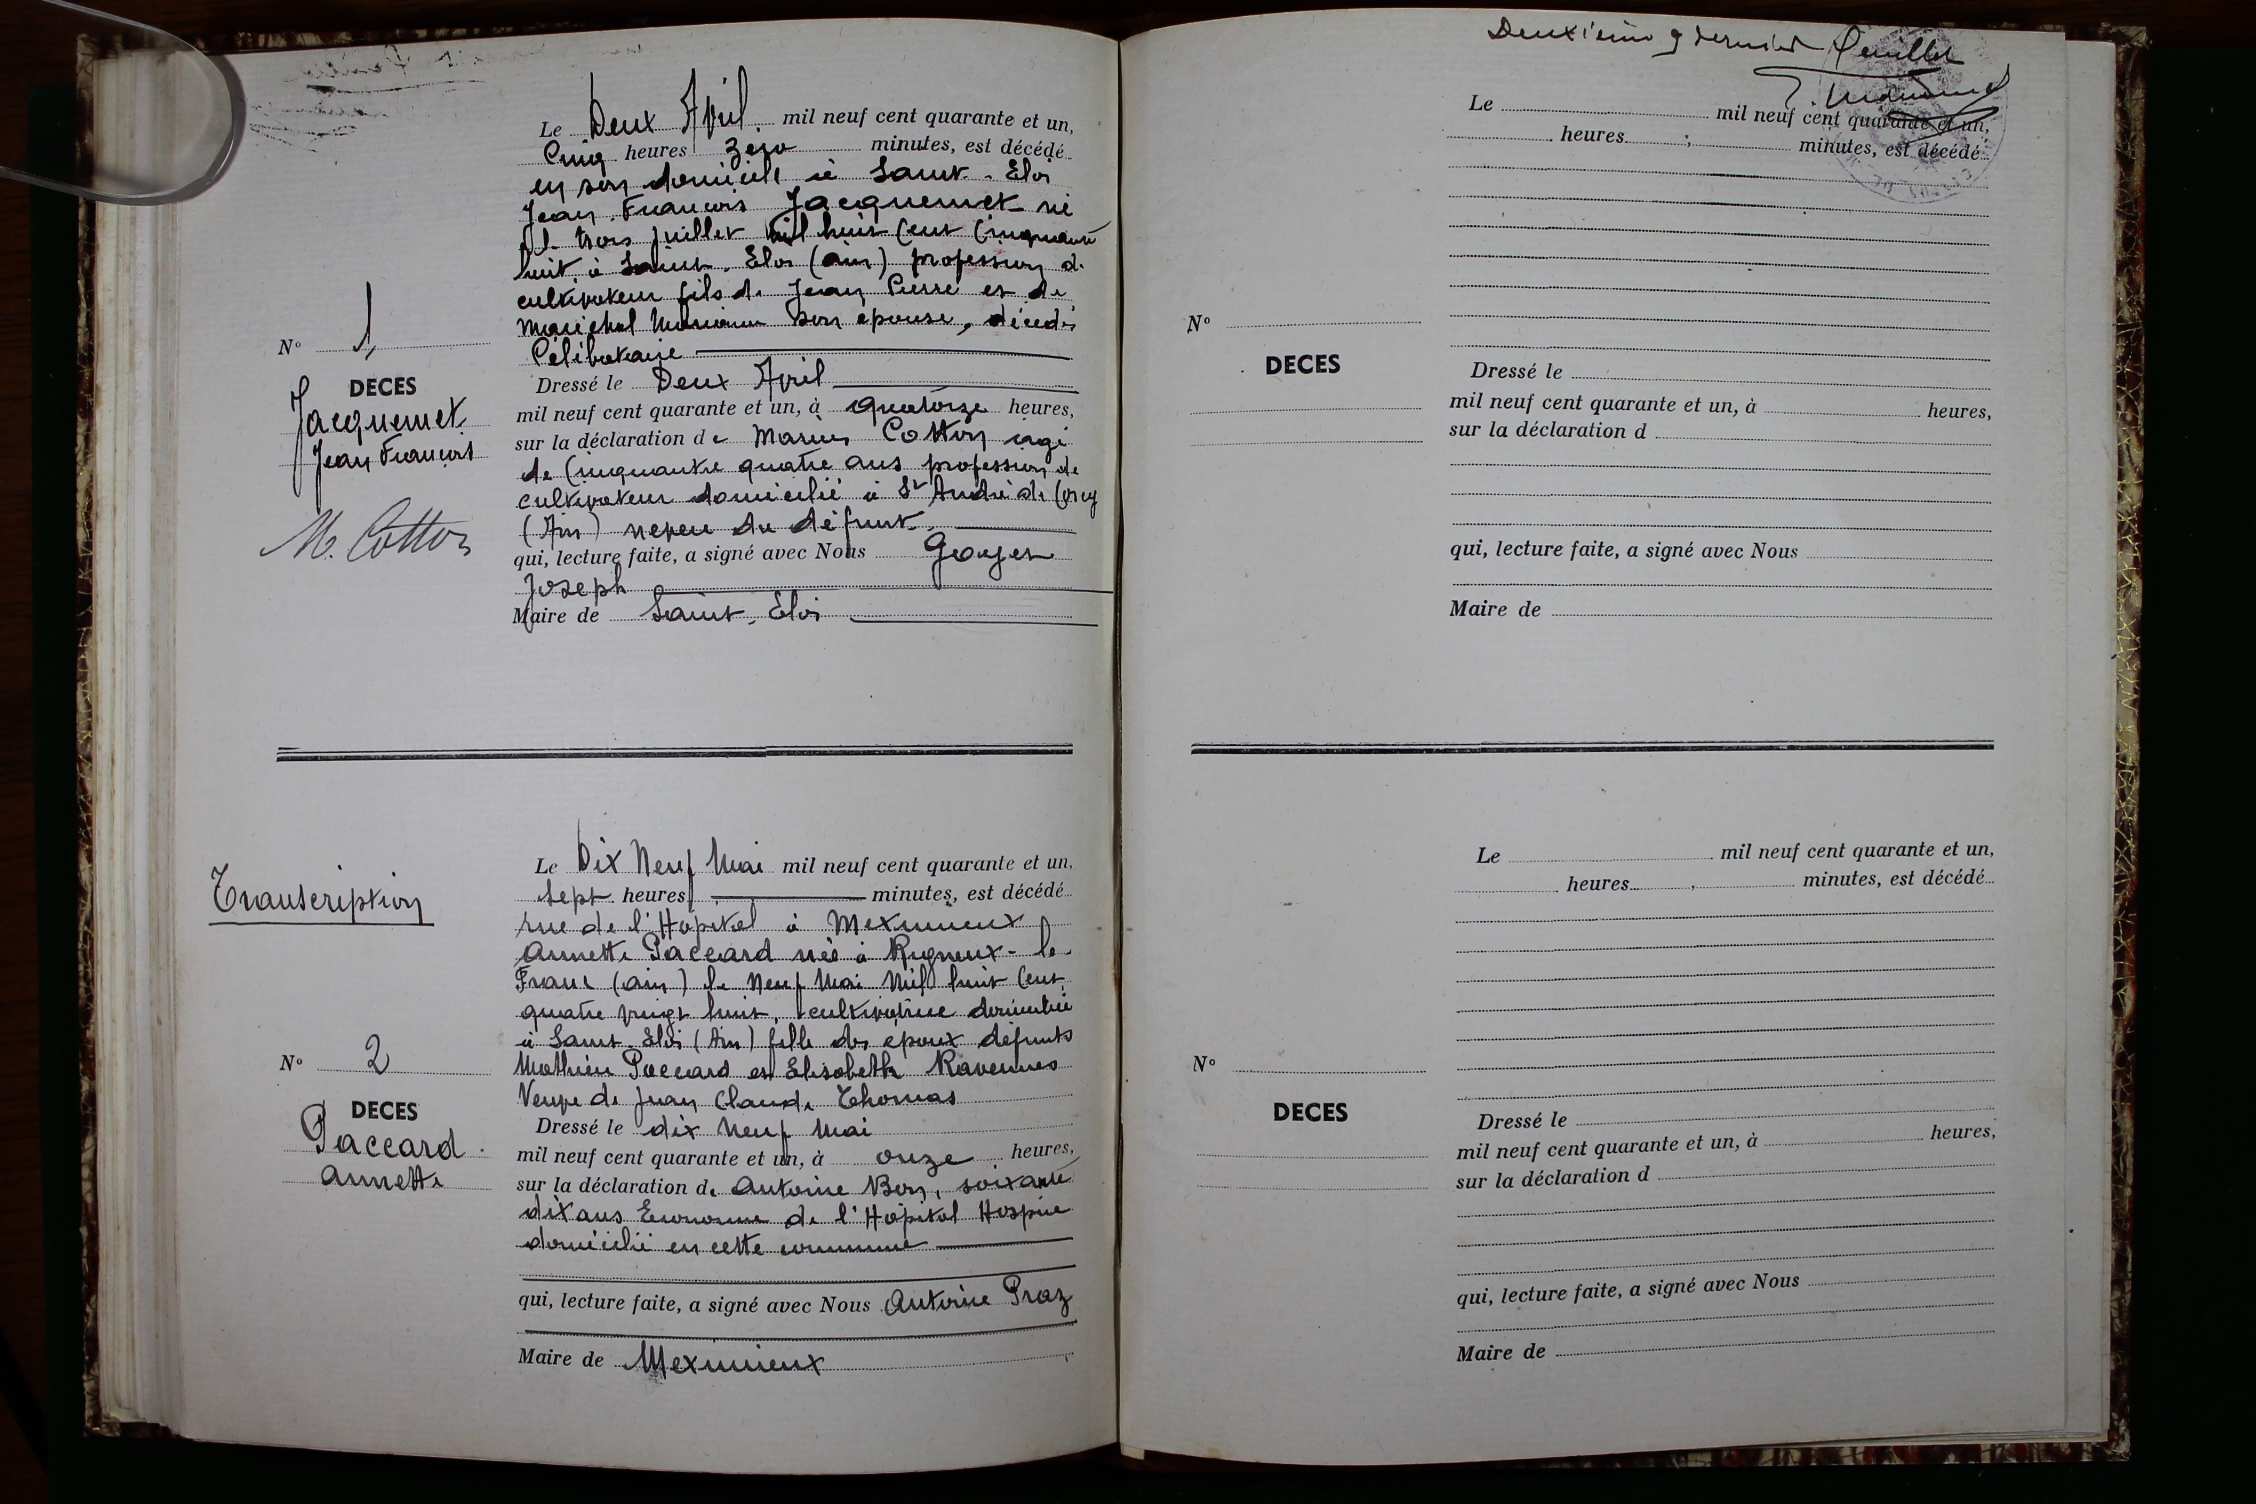 Le Deux Avril mil neuf cent quarante et un,
Cinq heures zéro minutes, est décédé
en son domicile à Saint-Eloi
Jean François Jacquemet né
le trois juillet mil huit Cent Cinquante
huit à Saint-Eloi (ain) profession de
cultivateur fils de Jean Pierre et de
Maréchal Marianne son épouse, décédé
Célibataire
N° 1
DECES
Jacquemet
Jean François
M. Cotton
Dressé le Deux Avril
mil neuf cent quarante et un, à quatorze heures,
sur la déclaration de Marius Cotton âgé
de Cinquante quatre ans profession de
cultivateur domicilié à St André de Corcy
(Ain) neveu du défunt
qui, lecture faite, a signé avec Nous
Joseph
Maire de Saint-Eloi
Transcription
Le Dix Neuf Mai mil neuf cent quarante et un,
sept heures minutes, est décédé
rue de l'Hôpital à Meximieux
Annette Paccard née à Rigneux-le
Franc (ain) le Neuf Mai Mil huit Cent
quatre vingt huit, cultivatrice domiciliée
à Saint-Eloi (Ain) fille des époux défunts
Mathieu Paccard et Elisabeth Ravennes
Veuve de Jean Claude Thomas
N° 2
DECES
Paccard
Annette
Dressé le dix neuf Mai
mil neuf cent quarante et un, à onze heures,
sur la déclaration de Antoine Bon, soixante
dix ans Econome de l'Hôpital Hospice
domicilié en cette commune
qui, lecture faite, a signé avec Nous Antoine Praz
Maire de Meximieux
Deuxième et dernier feuillet
Le mil neuf cent quarante et un,
heures minutes, est décédé
N°
DECES
Dressé le
mil neuf cent quarante et un, à heures,
sur la déclaration d
qui, lecture faite, a signé avec Nous
Maire de
Le mil neuf cent quarante et un,
heures minutes, est décédé
N°
DECES
Dressé le
mil neuf cent quarante et un, à heures,
sur la déclaration d
qui, lecture faite, a signé avec Nous
Maire de